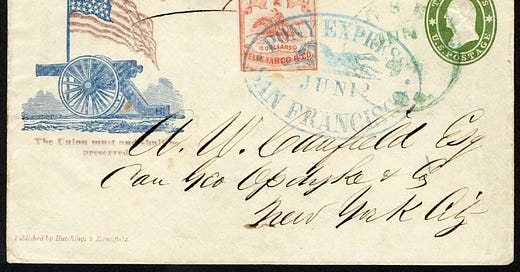 2
DOLLARS
WELLS, FARGO & CO.
PONY EXPRESS
JUN 12
SAN FRANCISCO
U.S. POSTAGE
The Union must and shall be
preserved
W. W. Caufield Esq
Care Geo Opdyke & Co
New York City
Published by Hutchings & Rosenfield.